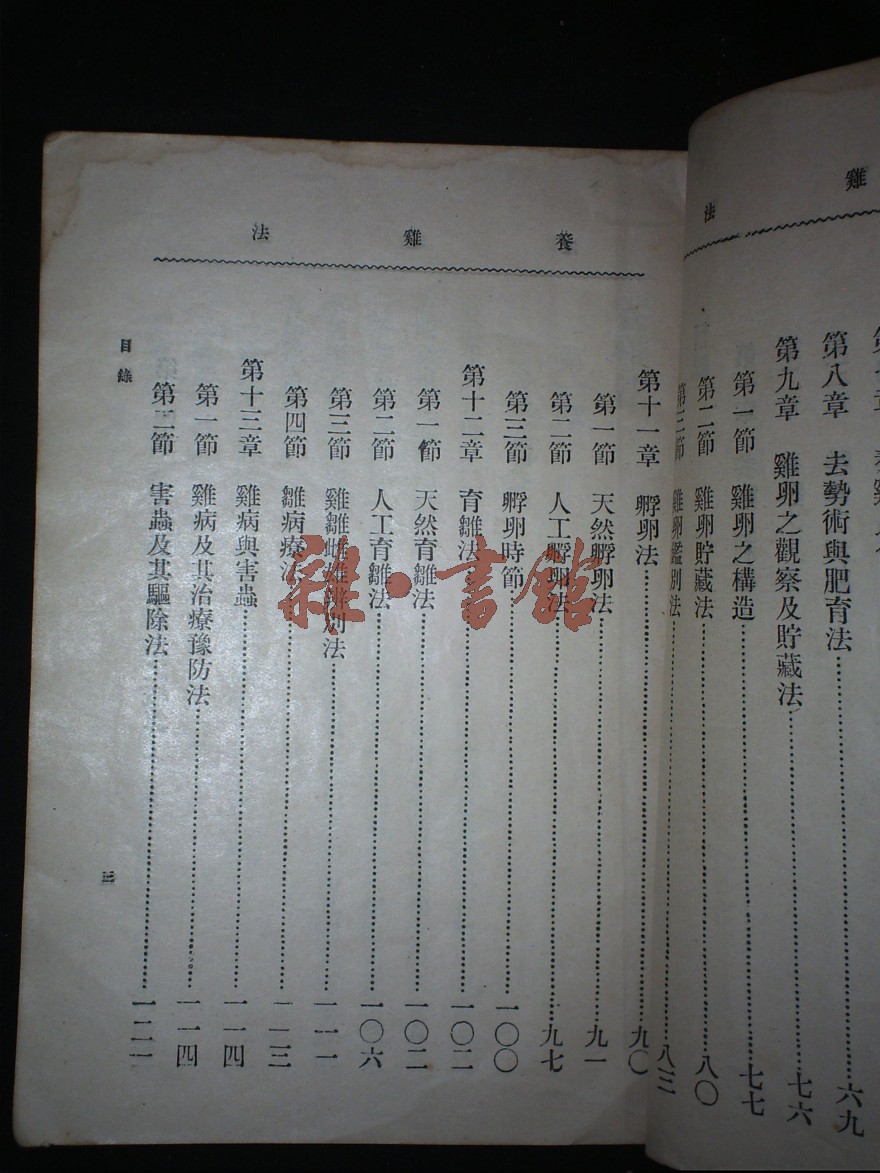 雞法
第八章 去勢術與肥育法……六九
第九章 雞卵之觀察及貯藏法……七六
第一節 雞卵之構造……七七
第二節 雞卵貯藏法……八〇
第三節 雞卵鑑別法……八三
養雞法
第十一章 孵卵法……九〇
第一節 天然孵卵法……九一
第二節 人工孵卵法……九七
第三節 孵卵時節……一〇〇
第十二章 育雛法……一〇二
第一節 天然育雛法……一〇二
第二節 人工育雛法……一〇六
第三節 雞雛雌雄辨別法……一一一
第四節 雛病療法……一一三
第十三章 雞病與害蟲……一一四
第一節 雞病及其治療豫防法……一一四
第二節 害蟲及其驅除法……一二一
目錄
三
雜·書館